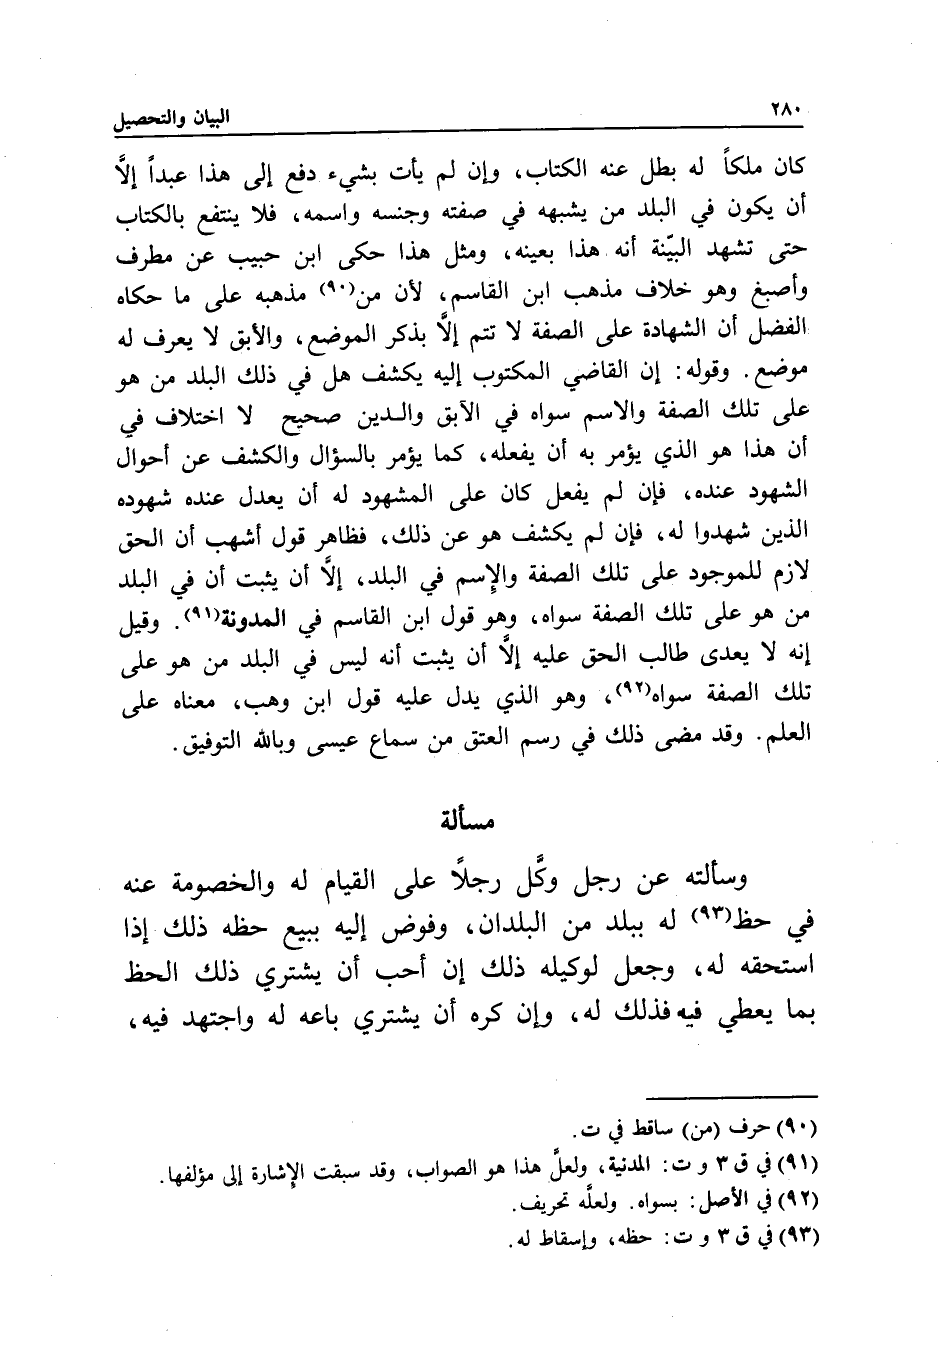 ٢٨٠
البيان والتحصيل
كان ملكاً له بطل عنه الكتاب، وإن لم يأت بشيء دفع إلى هذا عبداً إلاَّ
أن يكون في البلد من يشبهه في صفته وجنسه واسمه، فلا ينتفع بالكتاب
حتى تشهد البيّنة أنه هذا بعينه، ومثل هذا حكى ابن حبيب عن مطرف
وأصبغ وهو خلاف مذهب ابن القاسم، لأن من(٩٠) مذهبه على ما حكاه
الفضل أن الشهادة على الصفة لا تتم إلاَّ بذكر الموضع، والأبق لا يعرف له
موضع. وقوله: إن القاضي المكتوب إليه يكشف هل في ذلك البلد من هو
على تلك الصفة والاسم سواه في الآبق والدين صحيح لا اختلاف في
أن هذا هو الذي يؤمر به أن يفعله، كما يؤمر بالسؤال والكشف عن أحوال
الشهود عنده، فإن لم يفعل كان على المشهود له أن يعدل عنده شهوده
الذين شهدوا له، فإن لم يكشف هو عن ذلك، فظاهر قول أشهب أن الحق
لازم للموجود على تلك الصفة والإسم في البلد، إلاَّ أن يثبت أن في البلد
من هو على تلك الصفة سواه، وهو قول ابن القاسم في المدونة(٩١). وقيل
إنه لا يعدى طالب الحق عليه إلاَّ أن يثبت أنه ليس في البلد من هو على
تلك الصفة سواه(٩٢)، وهو الذي يدل عليه قول ابن وهب، معناه على
العلم. وقد مضى ذلك في رسم العتق من سماع عيسى وبالله التوفيق.
مسألة
وسألته عن رجل وكَّل رجلاً على القيام له والخصومة عنه
في حظ(٩٣) له ببلد من البلدان، وفوض إليه ببيع حظه ذلك إذا
استحقه له، وجعل لوكيله ذلك إن أحب أن يشتري ذلك الحظ
بما يعطي فيه فذلك له، وإن كره أن يشتري باعه له واجتهد فيه،
(٩٠) حرف (من) ساقط في ت.
(٩١) في ق ٣ و ت: المدنية، ولعلَّ هذا هو الصواب، وقد سبقت الإشارة إلى مؤلفها.
(٩٢) في الأصل: بسواه. ولعلَّه تحريف.
(٩٣) في ق ٣ و ت: حظه، وإسقاط له.